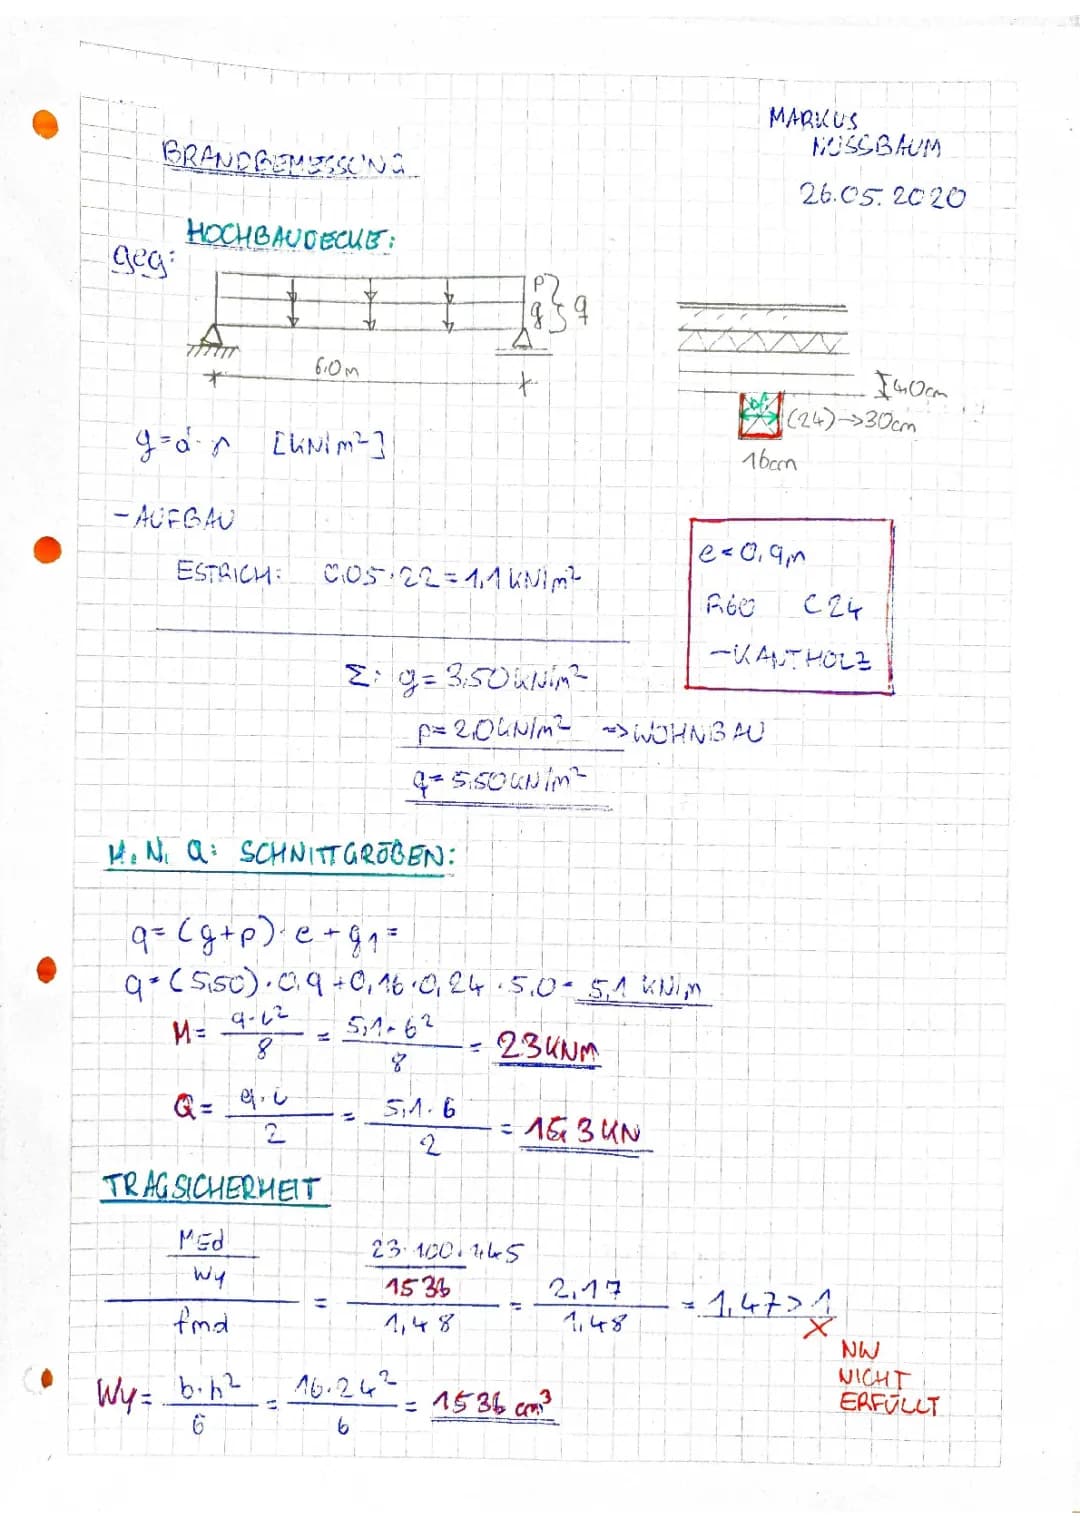 MARKUS
NUSSBAUM
26.05.2020
BRANDBEMESSUNG
HOCHBAUDECKE:
geg:
p
g } q
6,0m
40cm
(24)->30cm
16cm
g=d·γ [kN/m²]
-AUFBAU
ESTRICH: 0,05·22=1,1 kN/m²
e=0,9m
R60 C24
-KANTHOLZ
Σ: g=3,50 kN/m²
p=2,0 kN/m² => WOHNBAU
q=5,50 kN/m²
M, N, Q: SCHNITTGRÖßEN:
q=(g+p)·e+g1=
q=(5,50)·0,9+0,16·0,24·5,0=5,1 kN/m
M= q·l²/8 = 5,1·6²/8 = 23 kNm
Q= q·l/2 = 5,1·6/2 = 15,3 kN
TRAGSICHERHEIT
MEd/Wy / fmd = 23·100·1,45/1536 / 1,48 = 2,17/1,48 = 1,47>1
X
NW
NICHT
ERFÜLLT
Wy= b·h²/6 = 16·24²/6 = 1536 cm³